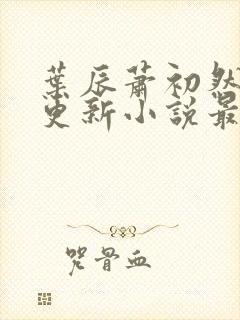 葉辰蕭初然
更新小說最
咒骨血